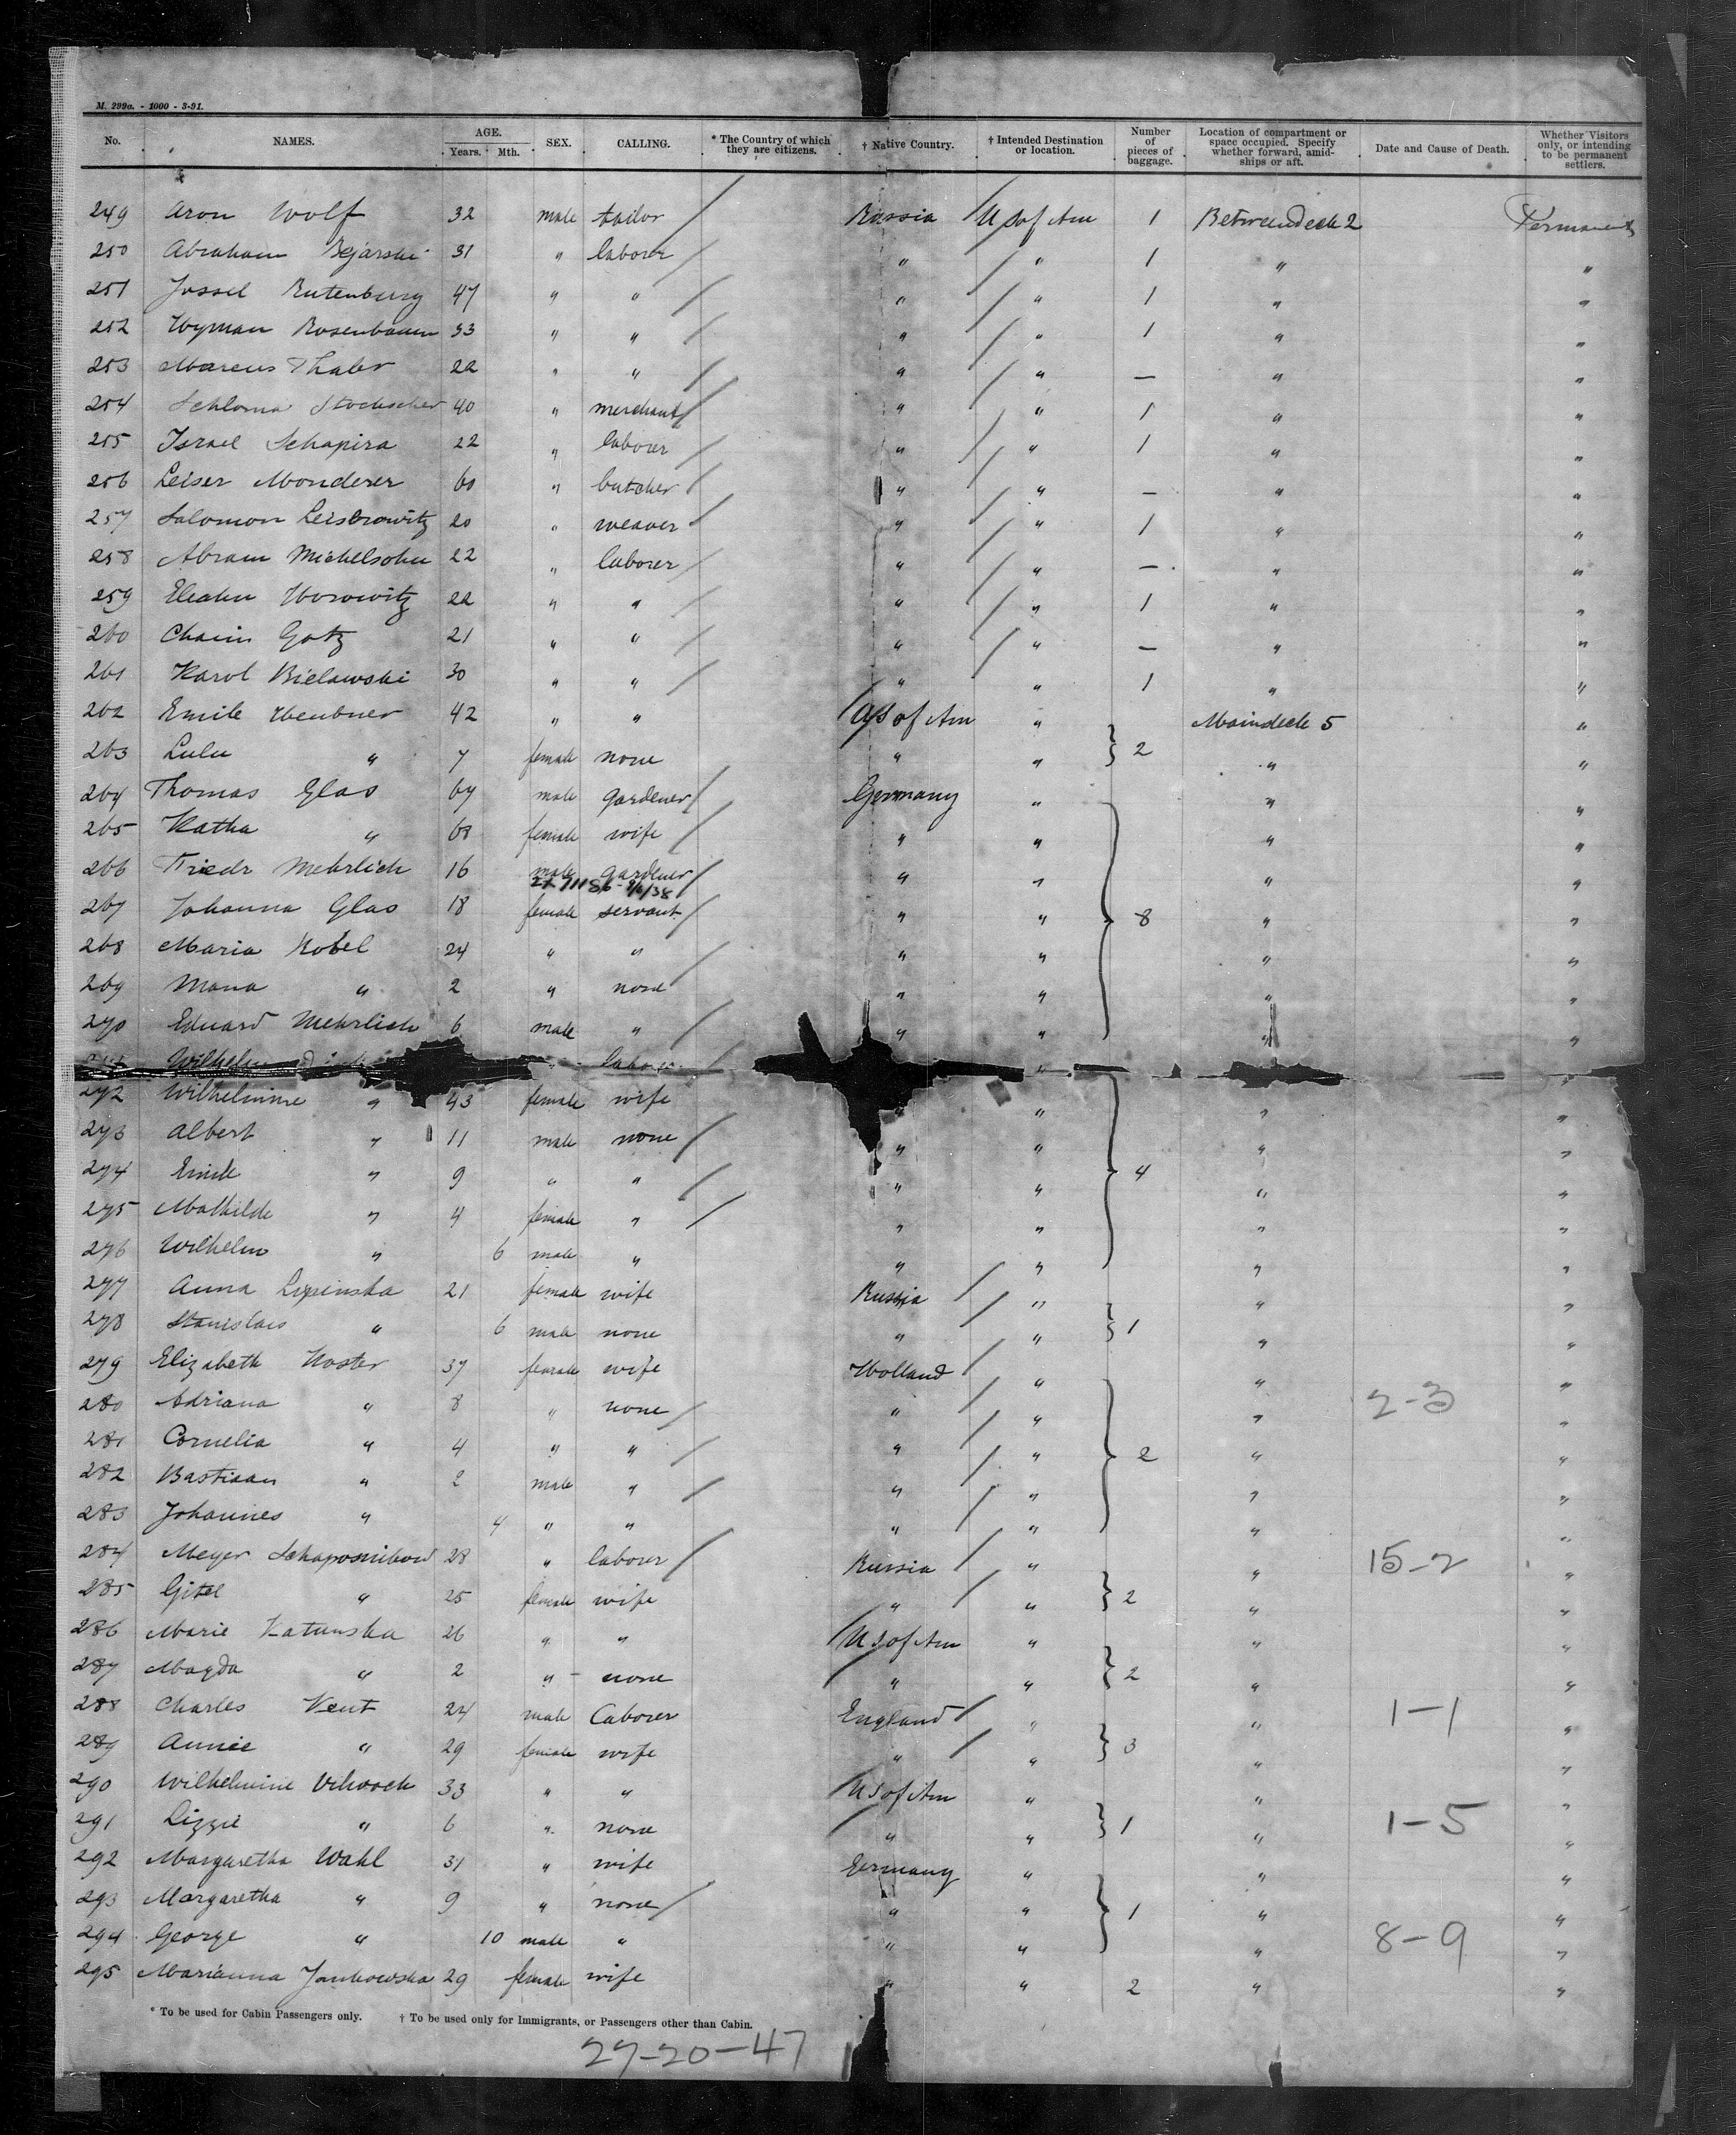 M. 299a. - 1000 - 3-91.
No. NAMES. AGE. Years. Mth. SEX. CALLING. * The Country of which they are citizens. † Native Country. † Intended Destination or location. Number of pieces of baggage. Location of compartment or space occupied. Specify whether forward, amidships or aft. Date and Cause of Death. Whether Visitors only, or intending to be permanent settlers.
249 Aron Wolf 32 male tailor Russia U S of Am 1 Betweendeck 2 Permanent
250 Abraham Bejarski 31 " laborer " " 1 " "
251 Jossel Rutenberg 47 " " " " 1 " "
252 Hyman Rosenbaum 33 " " " " 1 " "
253 Marcus Thaler 22 " " " " — " "
254 Schloma 40 " merchant " " 1 " "
255 Israel Schapira 22 " laborer " " 1 " "
256 Leiser Monderer 60 " butcher " " — " "
257 Salomon Leisbrowitz 20 " weaver " " 1 " "
258 Abram Michelsohn 22 " laborer " " — " "
259 Horowitz 22 " " " " 1 " "
260 Chaim Gotz 21 " " " " — " "
261 Karol Bielawski 30 " " " " 1 " "
262 Emile Heubner 42 " " U S of Am " Maindeck 5 "
263 Lulu " 7 female none " " 2 " "
264 Thomas Glas 67 male gardener Germany " " "
265 Katha " 68 female wife " " " "
266 Friedr Mehrlich 16 male gardener " " " "
267 Johanna Glas 18 female servant " " 8 " "
268 Maria Kobel 24 " " " " " "
269 Maria " 2 " none " " " "
270 Eduard Mehrlich 6 male " " " " "
Wilhelm " "
272 Wilhelmine " 43 female wife " " " "
273 Albert " 11 male none " " " "
274 Emile " 9 " " " " 4 " "
275 Mathilde " 4 female " " " " "
276 Wilhelm " 6 male " " " " "
277 Anna Lipinska 21 female wife Russia " " "
278 Stanislaus " 6 male none " " 1 " "
279 Elizabeth Koster 37 female wife Holland " " "
280 Adriana " 8 " none " " " 2-3 "
281 Cornelia " 4 " " " " 2 " "
282 Bastiaan " 2 male " " " " "
283 Johannes " 4 " " " " " "
284 Meyer Schaposnikow 28 " laborer Russia " " 15-2 "
285 Gitel " 25 female wife " " 2 " "
286 Marie Katunska 26 " " U S of Am " " "
287 Magda " 2 " none " " 2 " "
288 Charles Kent 24 male laborer England " " 1-1 "
289 Annie " 29 female wife " " 3 " "
290 Wilhelmine 33 " " U S of Am " " "
291 Lizzie " 6 " none " " 1 " 1-5 "
292 Margaretha Wahl 31 " wife Germany " " "
293 Margaretha " 9 " none " " 1 " "
294 George " 10 male " " " " 8-9 "
295 Marianna Jankowska 29 female wife " " 2 " "
* To be used for Cabin Passengers only. † To be used only for Immigrants, or Passengers other than Cabin.
27-20-47